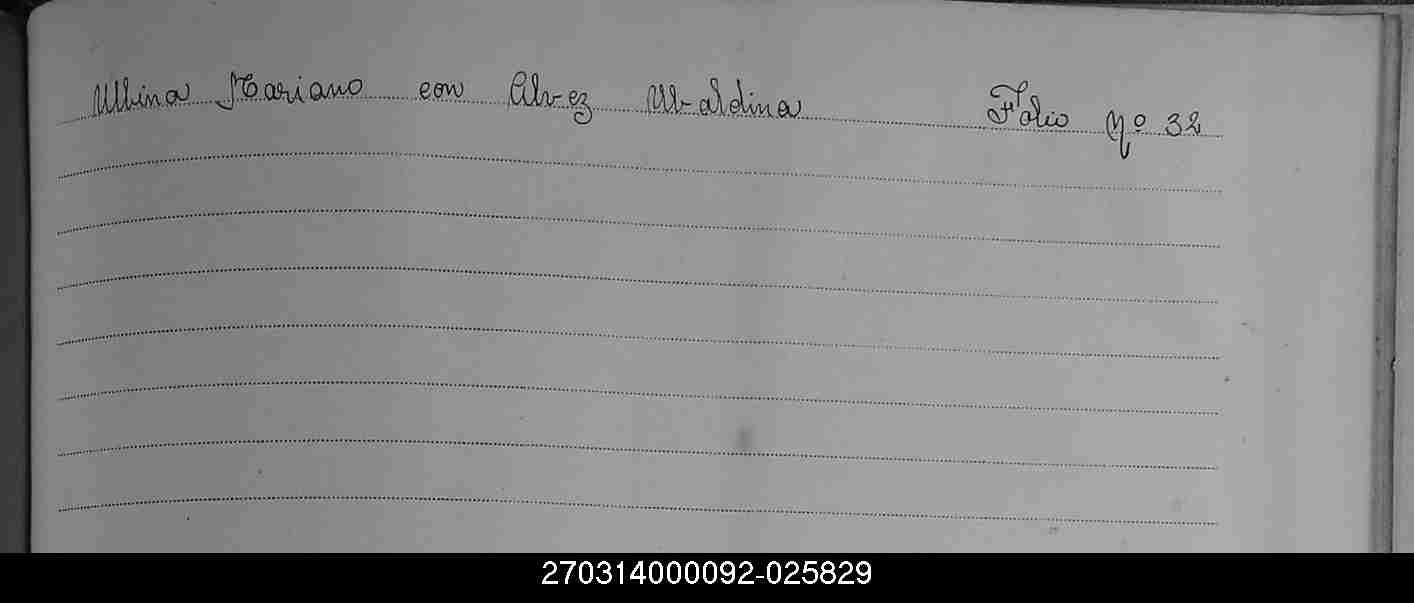 Ulbina Mariano con Alvez Ubaldina Folio Nº 32
270314000092-025829